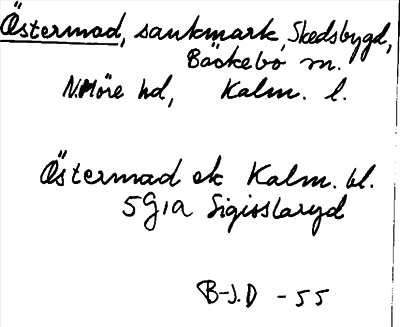 Östermad, sankmark, Skedsbygd,
Bäckebo sn.
N.Möre hd, Kalm. l.
Östermad ek Kalm. bl.
5G1a Sigisslaryd
B-J.D - 55